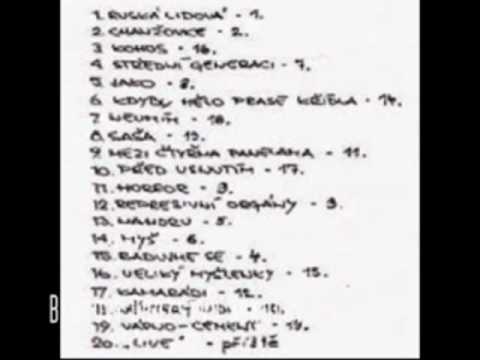 1. RUSKÁ LIDOVÁ - 1.
2. CHANŽOVICE - 2.
3. KOHOS - 16.
4. STŘEDNÍ GENERACI - 7.
5. JAKO - 8.
6. KDYBY MĚLO PRASE KŘÍDLA - 14.
7. NEUMÍM - 18.
8. SAŠA - 13.
9. MEZI ČTYŘMA PANELAMA - 11.
10. PŘED USNUTÍM - 17.
11. HORROR - 9.
12. REPRESIVNÍ ORGÁNY - 3.
13. MANDRU - 5.
14. MYŠ - 6.
15. RADUJME SE - 4.
16. VELIKÝ MYŠLENKY - 15.
17. KAMARÁDI - 12.
18.
19. VÁPNO-CEMENT - 19.
20. „LIVE" - příště
B